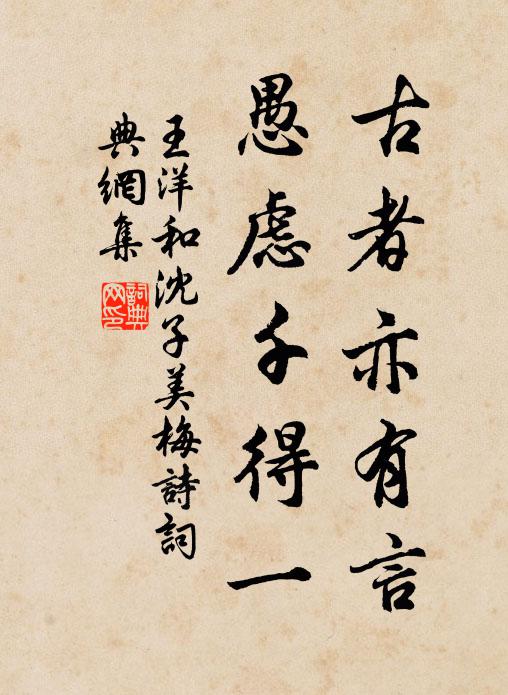 古者亦有言
愚慮千得一
王洋和沈子美梅詩詞
典網集
詞典網印